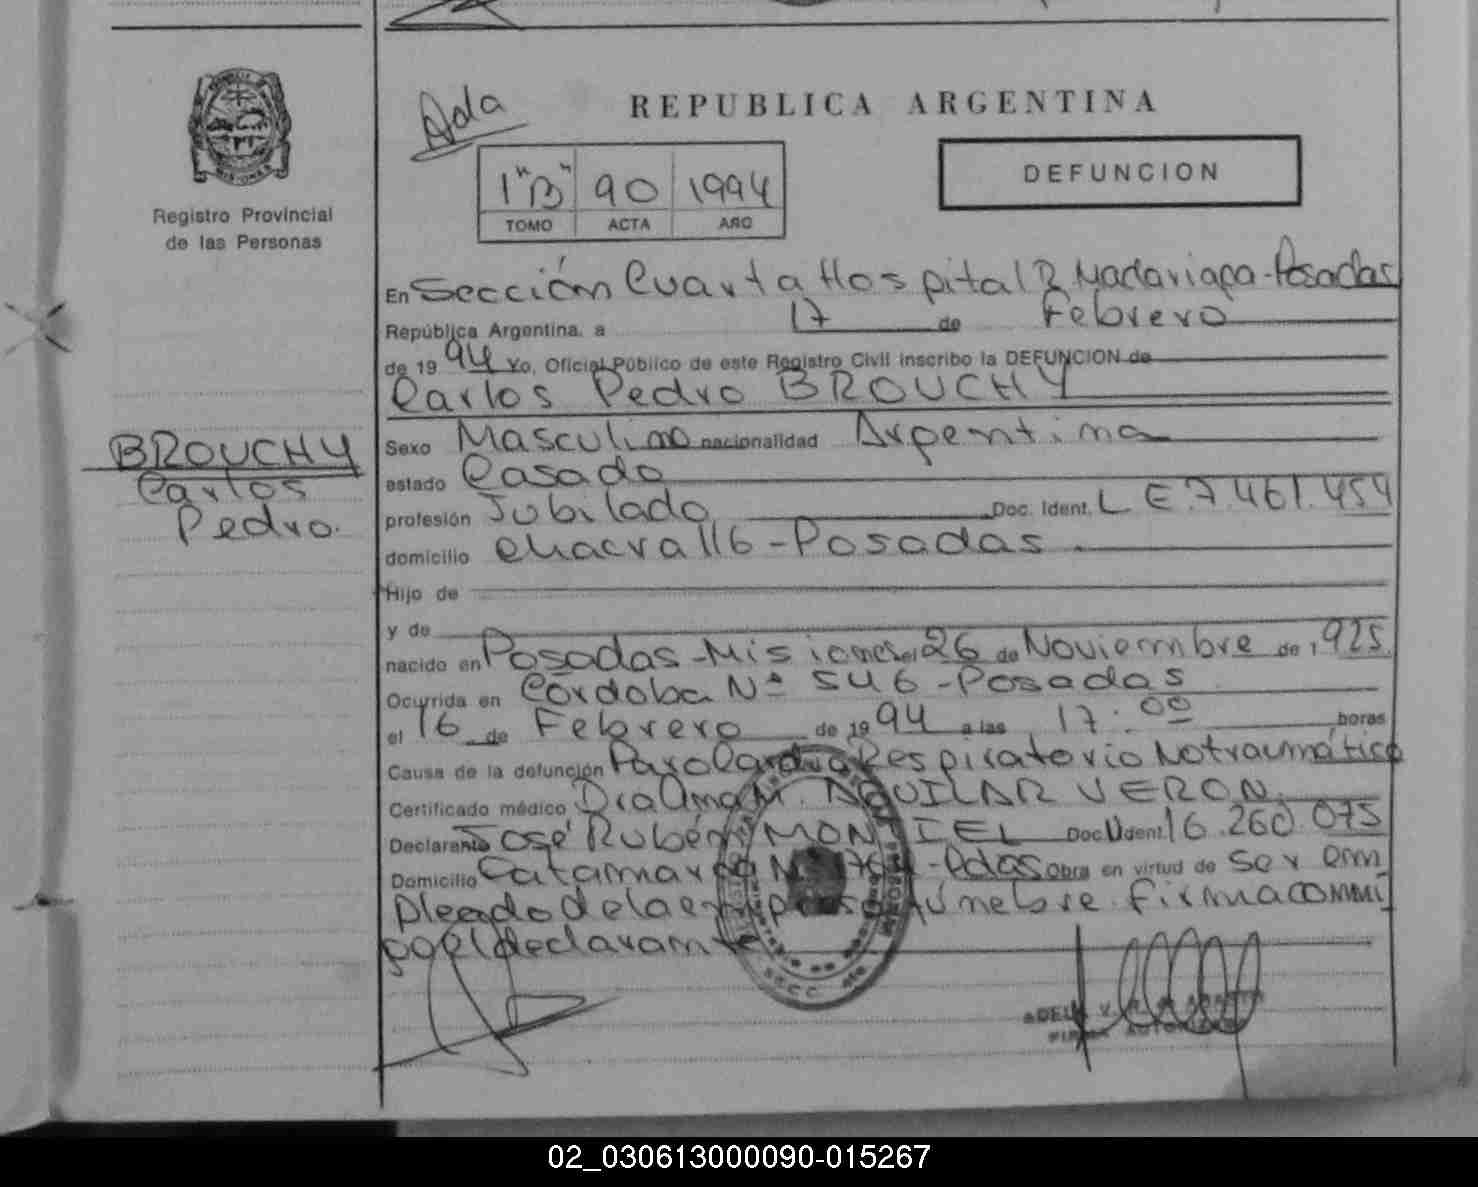 Ada
REPUBLICA ARGENTINA
DEFUNCION
1"B" 90 1994
TOMO ACTA AÑO
Registro Provincial
de las Personas
MISIONES
BROUCHY
Carlos
Pedro.
En Sección Cuarta Hospital R Madariaga-Posadas
República Argentina, a 17 de Febrero
de 1994 Yo, Oficial Público de este Registro Civil inscribo la DEFUNCION de
Carlos Pedro BROUCHY
Sexo Masculino nacionalidad Argentina
estado Casado
profesión Jubilado Doc. Ident. L E 7.461.454
domicilio chacra 116-Posadas.
Hijo de
y de
nacido en Posadas-Misiones el 26 de Noviembre de 1925
Ocurrida en Córdoba Nº 546-Posadas
el 16 de Febrero de 1994 a las 17:00 horas
Causa de la defunción Paro Cardio Respiratorio No traumático
Certificado médico Dra Ana M. AGUILAR VERON
Declarante José Rubén MONTIEL Doc. Ident. 16.260.075
Domicilio Catamarca Nº -Pdas Obra en virtud de ser em
pleado de la empresa fúnebre. firma conmi
go el declarante
02_030613000090-015267